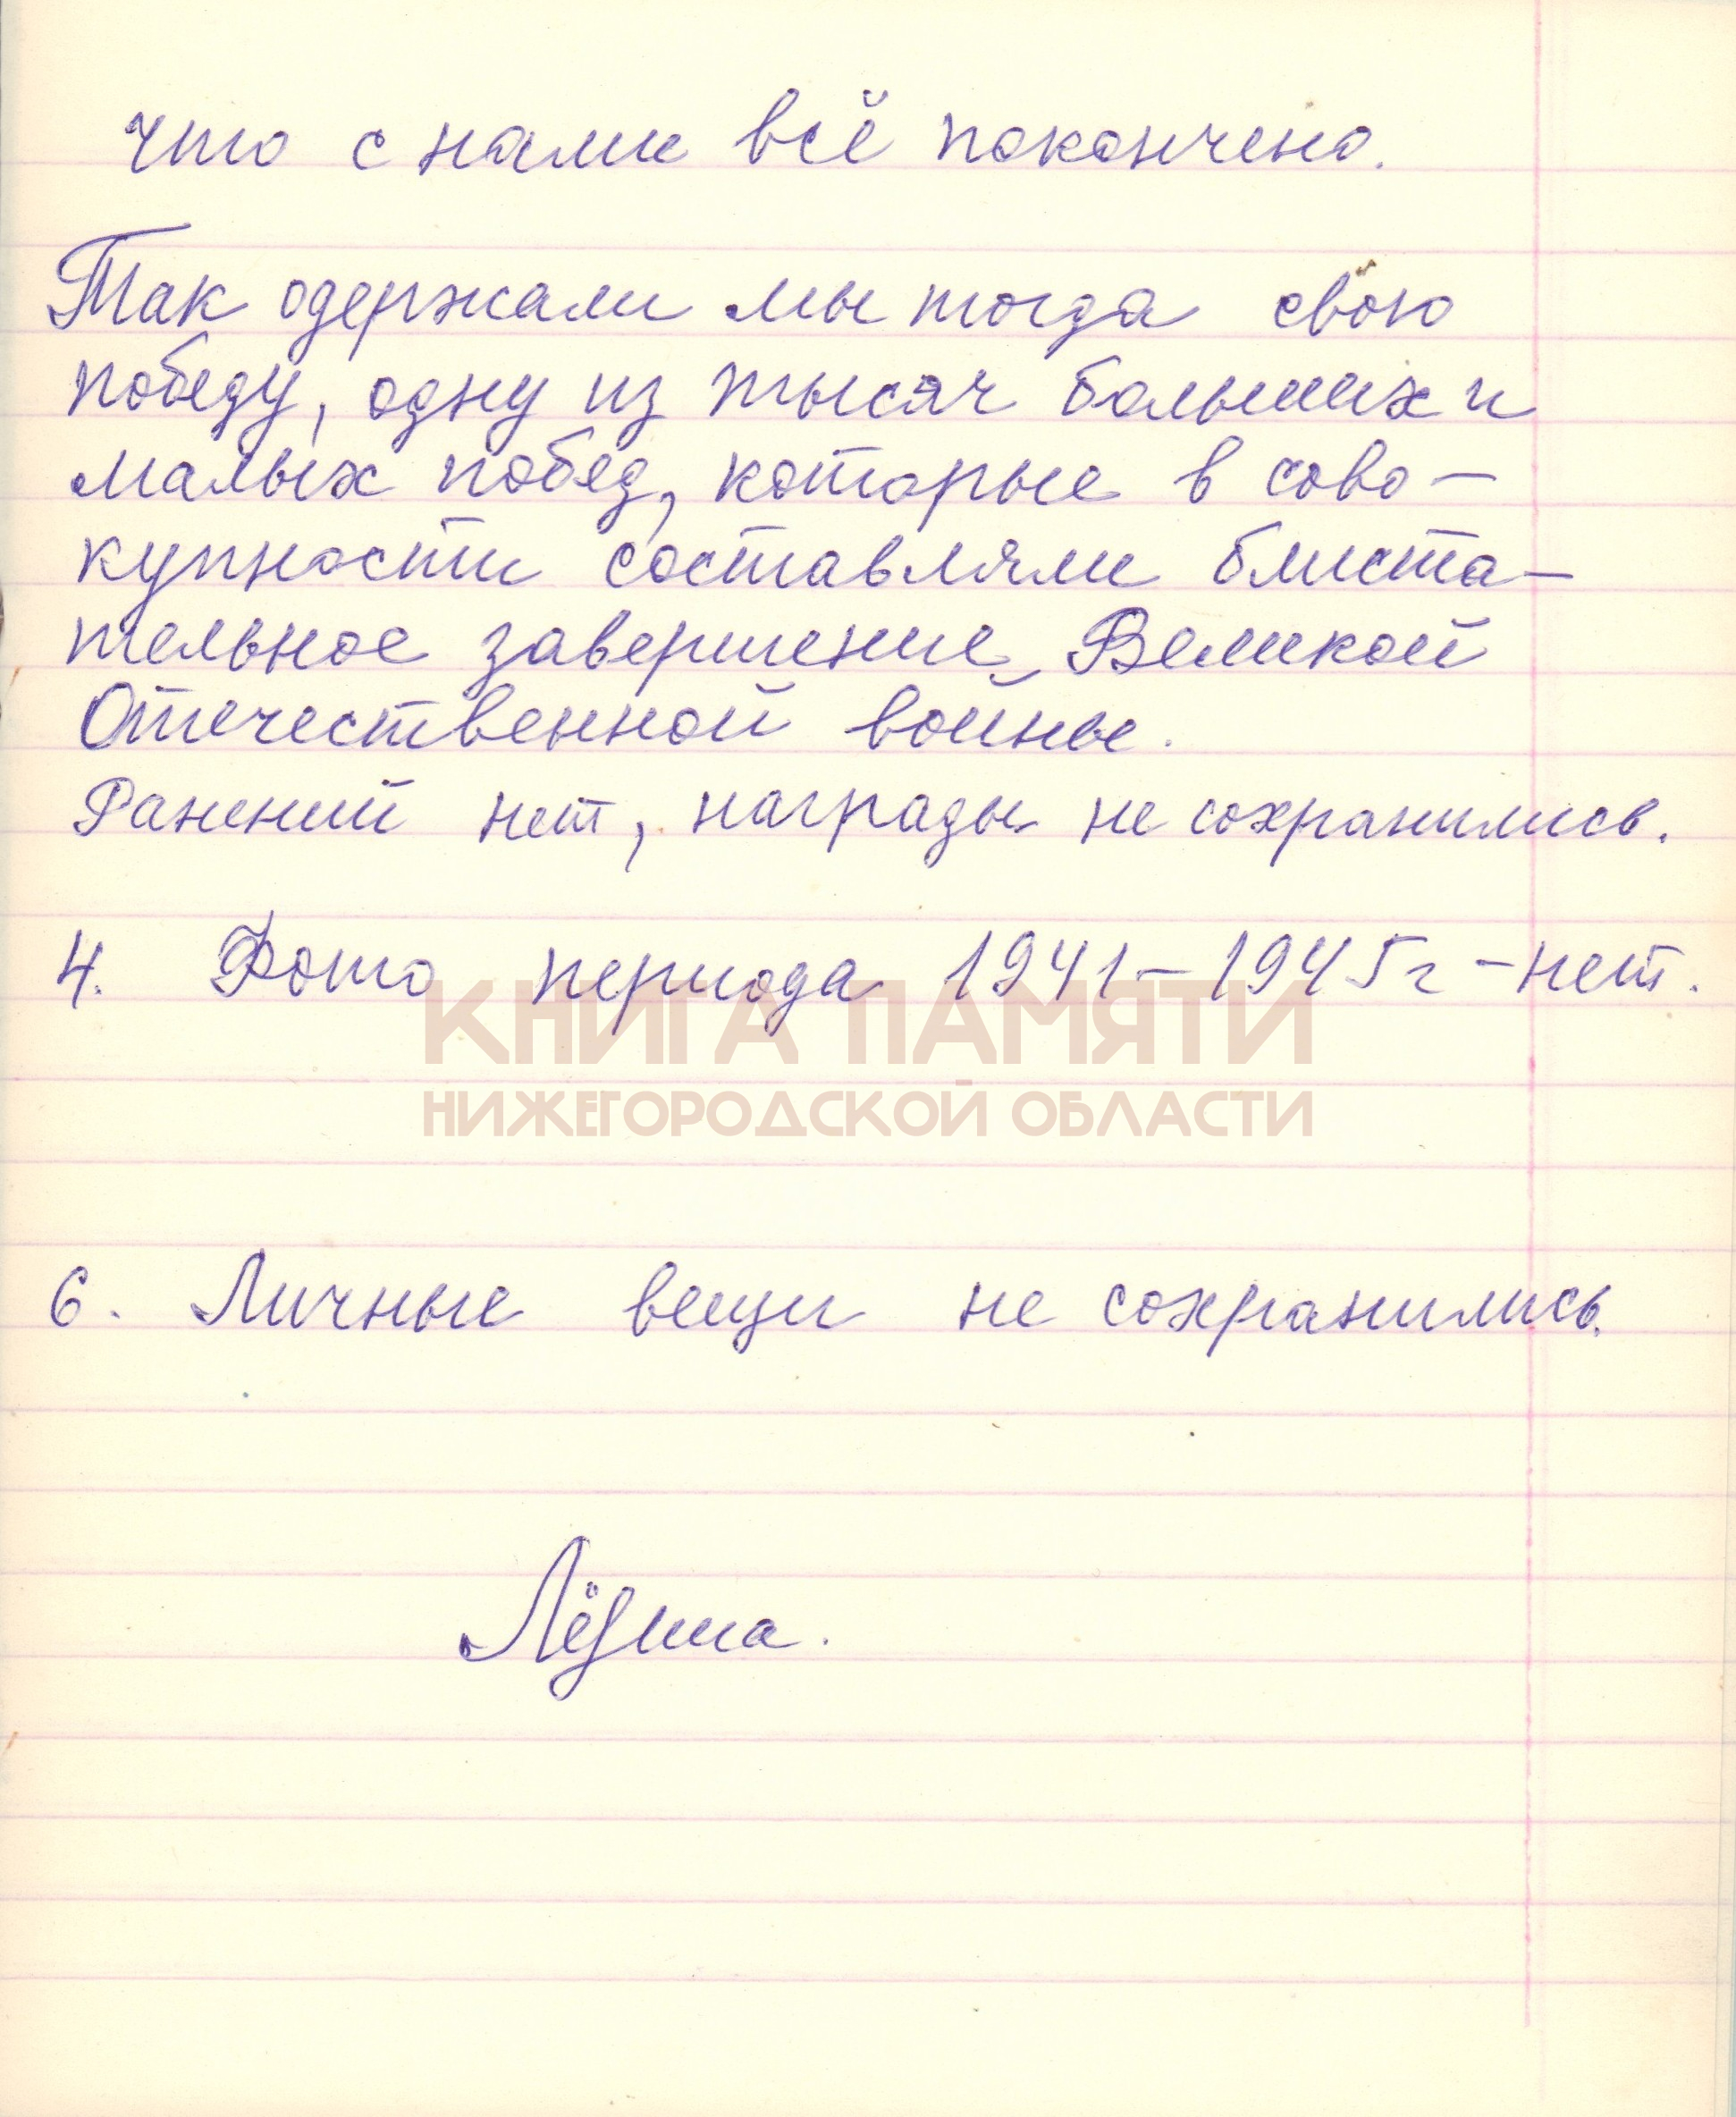 что с нами всё покончено.
Так одержали мы тогда свою
победу, одну из тысяч больших и
малых побед, которые в сово-
купности составляли блиста-
тельное завершение Великой
Отечественной войны.
Ранений нет, награды не сохранились.
4. Фото периода 1941-1945г - нет.
КНИГА ПАМЯТИ
НИЖЕГОРОДСКОЙ ОБЛАСТИ
6. Личные вещи не сохранились.